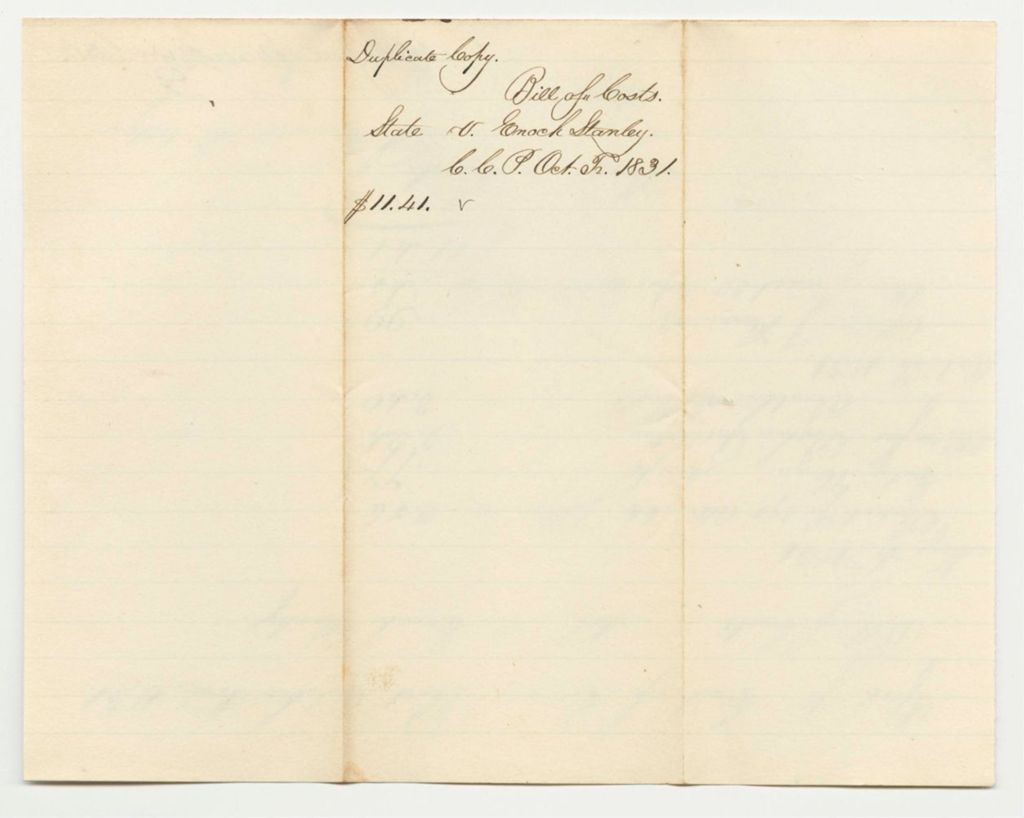 Duplicate Copy.
Bill of Costs.
State v. Enoch Stanley.
C. C. P. Oct. Tr. 1831.
$11.41. v